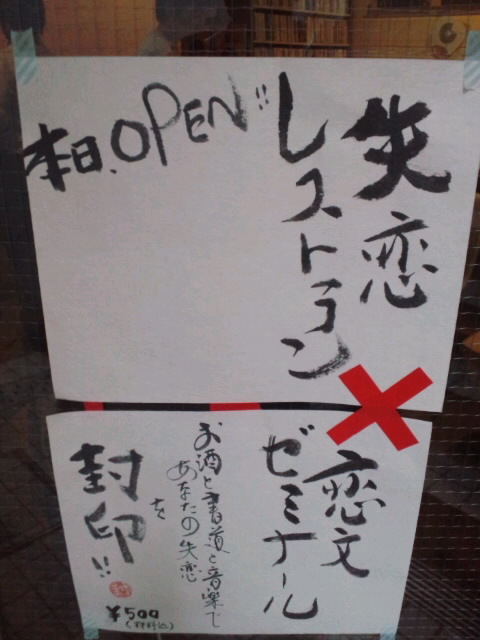 失恋
レストラン
本日、OPEN!!
恋文
ゼミナール
お酒と書道と音楽で
あなたの失恋
を
封印!!
¥500
(材料込)